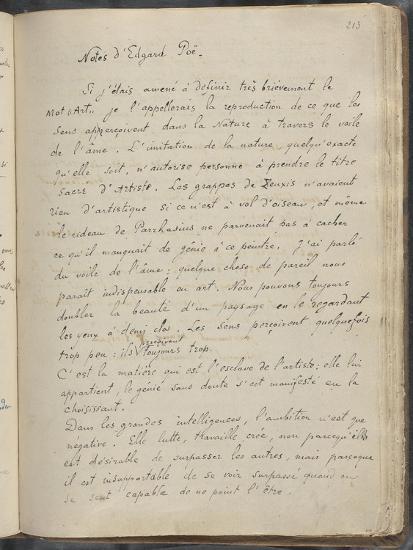 213
Notes d'Edgard Poë_
Si j'étais amené à définir très brièvement le
mot "Art" je l'appellerais la reproduction de ce que les
Sens apperçoivent dans la Nature à travers le voile
de l'âme. L'imitation de la nature, quelqu'exacte
qu'elle soit, n'autorise personne à prendre le titre
sacré d'Artiste. Les grappes de Zeuxis n'avaient
rien d'artistique si ce n'est à vol d'oiseau, et même
le rideau de Parrhasius ne parvenait pas à cacher
ce qu'il manquait de génie à ce peintre. J'ai parlé
du voile de l'âme; quelque chose de pareil nous
parait indispensable en art. Nous pouvons toujours
doubler la beauté d'un paysage en le regardant
les yeux à demi clos. Les Sens perçoivent quelquefois
trop peu; ils perçoivent toujours trop.
C'est la matière qui est l'esclave de l'artiste; elle lui
appartient, le génie sans doute s'est manifesté en la
choisissant.
Dans les grandes intelligences, l'ambition n'est que
négative. Elle lutte, travaille crée, non parcequ'il
est désirable de surpasser les autres, mais parceque
il est insupportable de se voir surpassé quand on
se sent capable de ne point l'être.